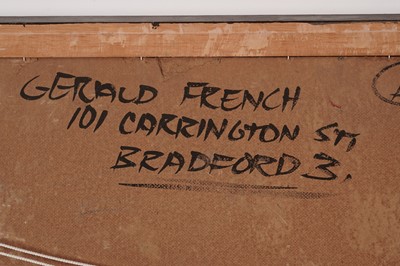 GERALD FRENCH
101 CARRINGTON ST,
BRADFORD 3.